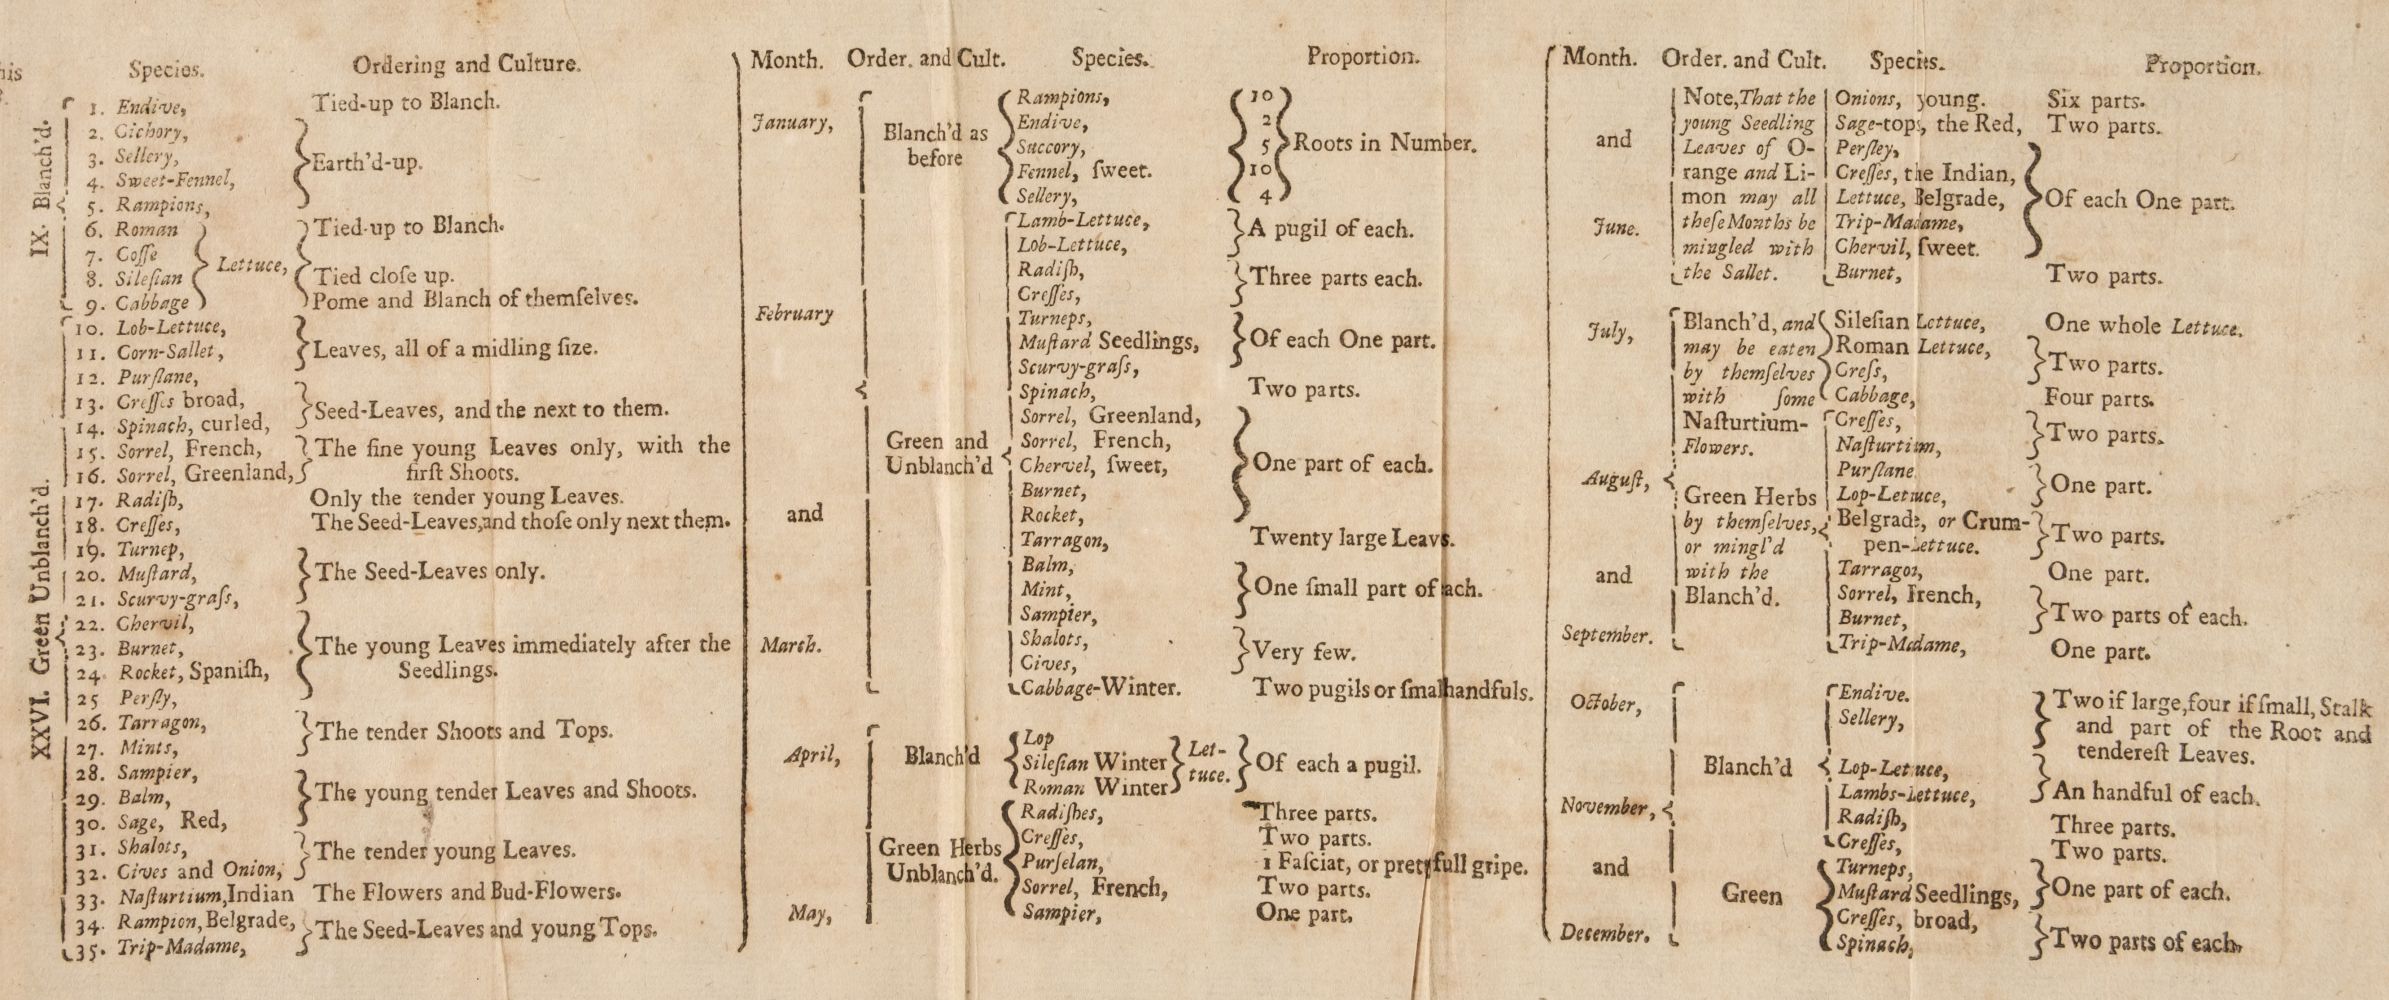 his
Species. Ordering and Culture.
IX. Blanch'd.
1. Endive, Tied-up to Blanch.
2. Cichory,
3. Sellery, Earth'd-up.
4. Sweet-Fennel,
5. Rampions,
6. Roman Tied-up to Blanch.
7. Coſſe
Lettuce,
8. Sileſian Tied cloſe up.
9. Cabbage Pome and Blanch of themſelves.
XXVI. Green Unblanch'd.
10. Lob-Lettuce,
11. Corn-Sallet, Leaves, all of a midling ſize.
12. Purſlane,
13. Creſſes broad, Seed-Leaves, and the next to them.
14. Spinach, curled,
15. Sorrel, French, The fine young Leaves only, with the
16. Sorrel, Greenland, firſt Shoots.
17. Radiſh, Only the tender young Leaves.
18. Creſſes, The Seed-Leaves, and thoſe only next them.
19. Turnep,
20. Muſtard, The Seed-Leaves only.
21. Scurvy-graſs,
22. Chervil,
23. Burnet, The young Leaves immediately after the
24. Rocket, Spaniſh, Seedlings.
25 Perſly,
26. Tarragon, The tender Shoots and Tops.
27. Mints,
28. Sampier,
29. Balm, The young tender Leaves and Shoots.
30. Sage, Red,
31. Shalots, The tender young Leaves.
32. Cives and Onion,
33. Naſturtium, Indian The Flowers and Bud-Flowers.
34. Rampion, Belgrade, The Seed-Leaves and young Tops.
35. Trip-Madame,
Month. Order. and Cult. Species. Proportion.
January,
February
and
March.
Blanch'd as
before
Rampions, 10
Endive, 2
Succory, 5 Roots in Number.
Fennel, ſweet. 10
Sellery, 4
Green and
Unblanch'd
Lamb-Lettuce, A pugil of each.
Lob-Lettuce,
Radiſh, Three parts each.
Creſſes,
Turneps,
Muſtard Seedlings, Of each One part.
Scurvy-graſs,
Spinach, Two parts.
Sorrel, Greenland,
Sorrel, French,
Chervel, ſweet, One part of each.
Burnet,
Rocket,
Tarragon, Twenty large Leavs.
Balm,
Mint, One ſmall part of ach.
Sampier,
Shalots, Very few.
Cives,
Cabbage-Winter. Two pugils or ſmal handfuls.
April,
May,
Blanch'd
Lop
Sileſian Winter Let- Of each a pugil.
Roman Winter tuce.
Green Herbs
Unblanch'd.
Radiſhes, Three parts.
Creſſes, Two parts.
Purſelan, 1 Faſciat, or prety full gripe.
Sorrel, French, Two parts.
Sampier, One part.
Month. Order. and Cult. Species. Proportion.
and
June.
Note, That the
young Seedling
Leaves of O-
range and Li-
mon may all
theſe Months be
mingled with
the Sallet.
Onions, young. Six parts.
Sage-tops, the Red, Two parts.
Perſley,
Creſſes, the Indian,
Lettuce, Belgrade, Of each One part.
Trip-Madame,
Chervil, ſweet.
Burnet, Two parts.
July,
August,
and
September.
Blanch'd, and
may be eaten
by themſelves
with ſome
Naſturtium-
Flowers.
Sileſian Lettuce, One whole Lettuce.
Roman Lettuce, Two parts.
Creſs,
Cabbage, Four parts.
Green Herbs
by themſelves,
or mingl'd
with the
Blanch'd.
Creſſes, Two parts.
Naſturtium,
Purſlane One part.
Lop-Lettuce,
Belgrade, or Crum- Two parts.
pen-Lettuce.
Tarragon, One part.
Sorrel, French, Two parts of each.
Burnet,
Trip-Madame, One part.
October,
November,
and
December.
Blanch'd
Endive. Two if large, four if ſmall, Stalk
Sellery, and part of the Root and
tendereſt Leaves.
Lop-Lettuce,
Lambs-Lettuce, An handful of each.
Radiſh, Three parts.
Creſſes, Two parts.
Green
Turneps,
Muſtard Seedlings, One part of each.
Creſſes, broad,
Spinach, Two parts of each,